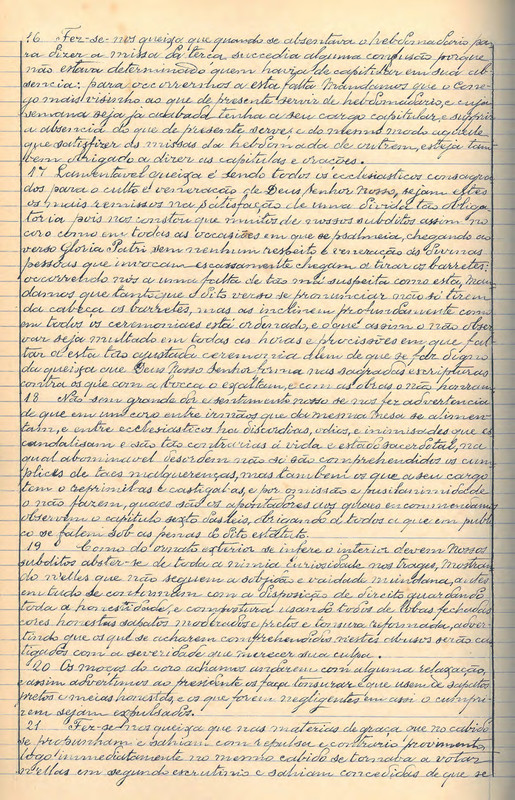 16 Fez-se-nos queixa que quando se absentava o hebdomadario pa-
ra dizer a missa da terça succedia alguma confusão porque
não estava determinado quem havia de capitular em sua ab-
sencia: para occorrermos a esta falta Mandamos que o Cone-
go mais visinho ao que de presente servir de hebdomadario, e cuja
semana seja já acabada tenha a seu cargo capitular, e supprir
a absencia do que de presente serve; e do mesmo modo aquelle
que satisfizer ás missas da hebdomada de outrem, esteja tam-
bem obrigado a dizer as capitulas e orações.
17 Lamentavel queixa é sendo todos os ecclesiasticos consagra-
dos para o culto e veneração de Deus Senhor Nosso, sejam estes
os mais remissos na satisfação de uma divida tão obriga-
toria pois nos constou que muitos de nossos subditos assim no
coro como em todas as occasiões em que se psalmeia, chegando ao
verso Gloria Patri sem nenhum respeito e veneração ás divinas
pessoas que invocam escassamente chegam a tirar os barretes:
occorrendo nós a uma falta de tão má suspeita como esta, Man-
damos que tanto que o dito verso se pronunciar não só tirem
da cabeça os barretes, mas as inclinem profundamente como
em todos os ceremoniaes está ordenado, e o que assim o não obser-
var seja multado em todas as horas e procissões em que fal-
tar a esta tão ajustada ceremonia alem de que se faz digno
da queixa que Deus Nosso Senhor forma nas sagradas escripturas
contra os que com a bocca o exaltam, e com as obras o não honram.
18 Não sem grande dôr e sentimento nosso se nos fez advertencia
de que em um coro entre irmãos que da mesma mesa se alimen-
tam, e entre ecclesiasticos ha discordias, odios, e inimisades que es-
candalisam e são tão contrarias á vida e estado sacerdotal, na
qual abominavel desordem não só são comprehendidos os cum-
plices de taes malquerenças, mas tambem os que a seu cargo
tem o reprimil-as e castigal-as, e por omissão e pusilanimidade
o não fazem, quaes são os apontadores aos quaes encommendamos
observem o capitulo sexto das leis, obrigando a todos a que em publi-
co se falem sob as penas do dito estatuto.
19 Como do ornato exterior se infere o interior devem Nossos
subditos abster-se de toda a nimia curiosidade nos trages, mostran-
do n'elles que não seguem a sujeição e vaidade mundana, antes
em tudo se conformam com a disposição de direito guardando
toda a honestidade, e compostura usando todos de lobas fechadas
cores honestas sapatos moderados e pretos e tonsura reformada, adver-
tindo que os que se acharem comprehendidos n'estes abusos serão cas-
tigados com a severidade que merecer sua culpa.
20 Os moços do coro achamos andarem com alguma relaxação,
e assim advertimos ao presidente os faça tonsurar e que usem de sapatos
pretos e meias honestas, e os que forem negligentes em assi o cumpri-
rem sejam expulsados.
21 Fez-se-nos queixa que nas materias de graça que no cabido
se propunham e sahiam com repulsa e contrario provimento,
logo immediatamente no mesmo cabido se tornava a votar
n'ellas em segundo escrutinio e sahiam concedidas de que se